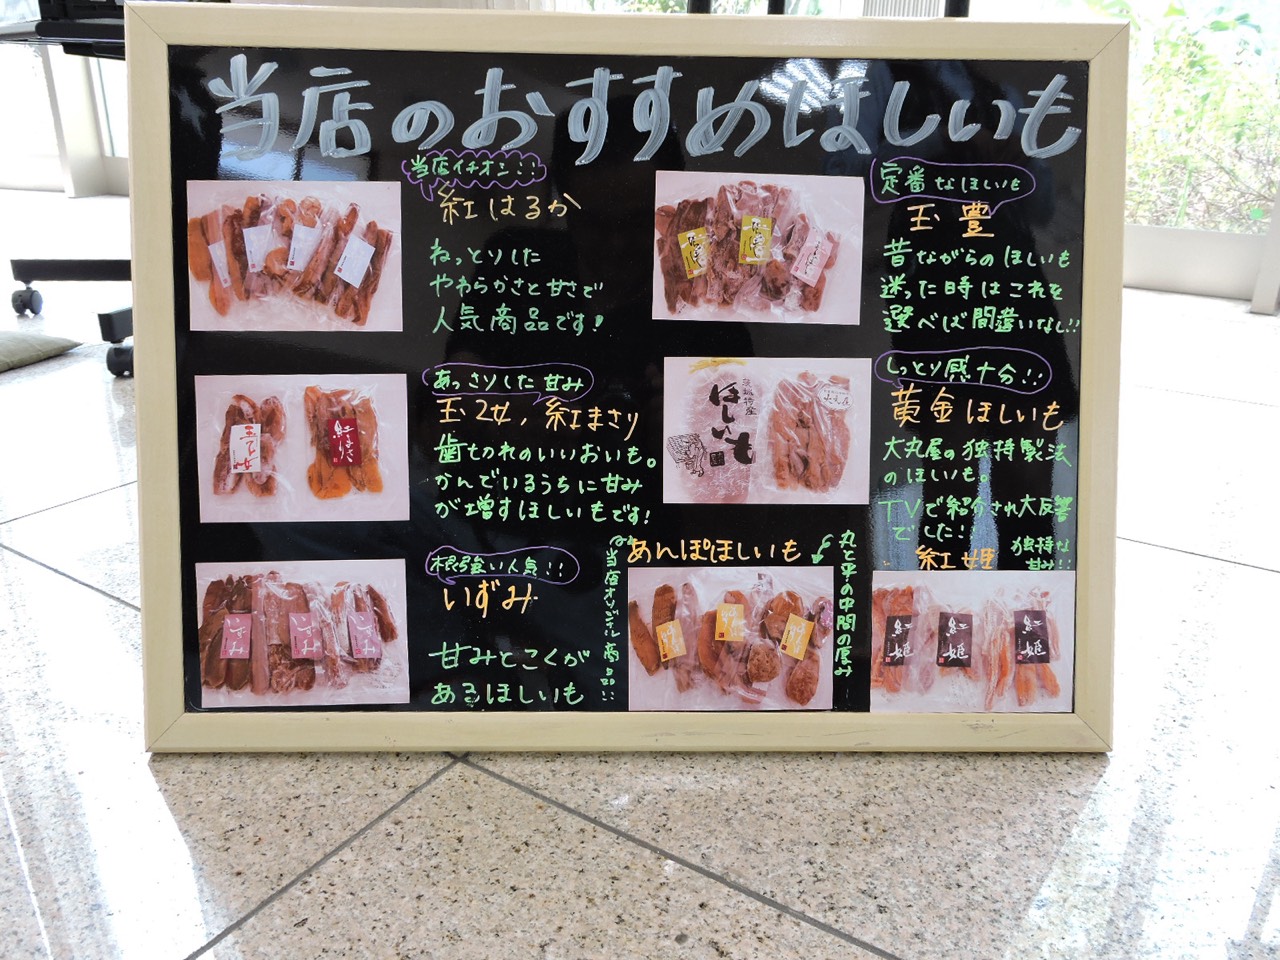 当店のおすすめほしいも
当店イチオシ!!
紅はるか
ねっとりした
やわらかさと甘さで
人気商品です!
定番なほしいも
玉豊
昔ながらのほしいも
迷った時はこれを
選べば間違いなし!!
あっさりした甘み
玉乙女,紅まさり
歯切れのいいおいも。
かんでいるうちに甘み
が増すほしいもです!
しっとり感十分!!
黄金ほしいも
大丸屋の独特製法
のほしいも。
TVで紹介され大反響
でした!
根強い人気!!
いずみ
甘みとこくが
あるほしいも
あんぽほしいも
当店オリジナル商品!!
丸と平の中間の厚み
紅姫
独特な
甘み!!
茨城特産
ほしいも
紅まさり
いずみ
いずみ
いずみ
紅姫
紅姫
紅姫